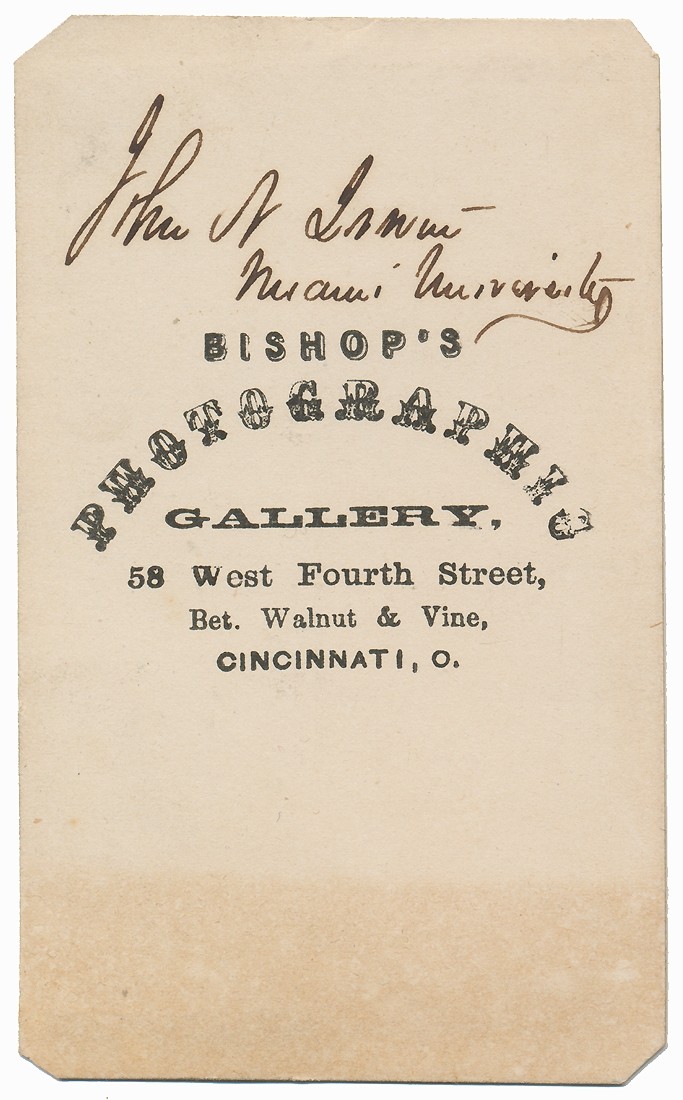 John N Irwin
Miami University
BISHOP'S
PHOTOGRAPHIC
GALLERY,
58 West Fourth Street,
Bet. Walnut & Vine,
CINCINNATI, O.